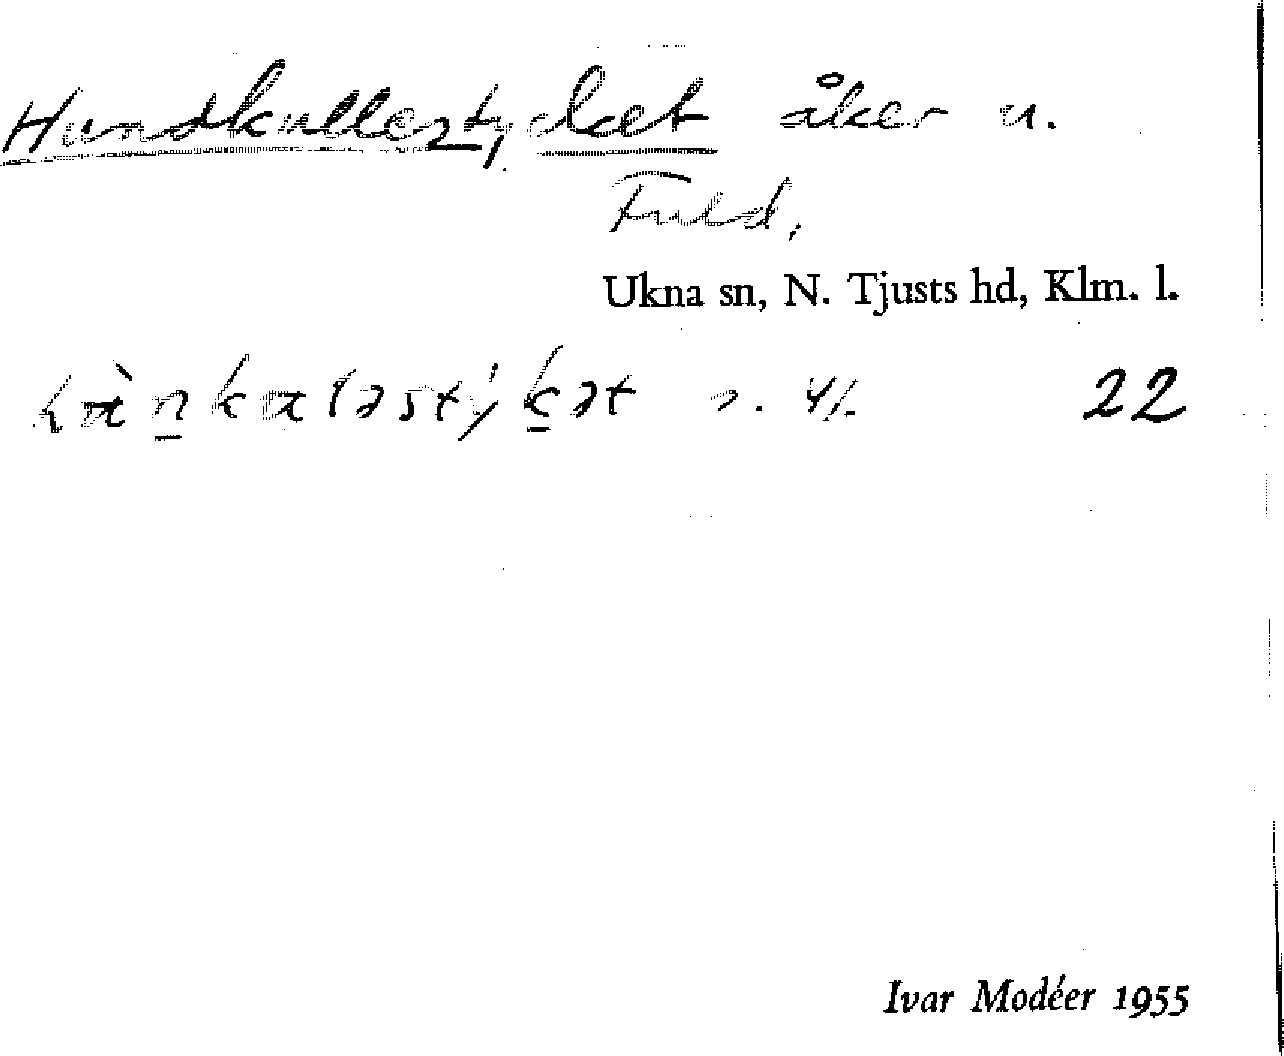 Hundkullestycket åker u.
Fuld.
Ukna sn, N. Tjusts hd, Klm. l.
22
Ivar Modéer 1955